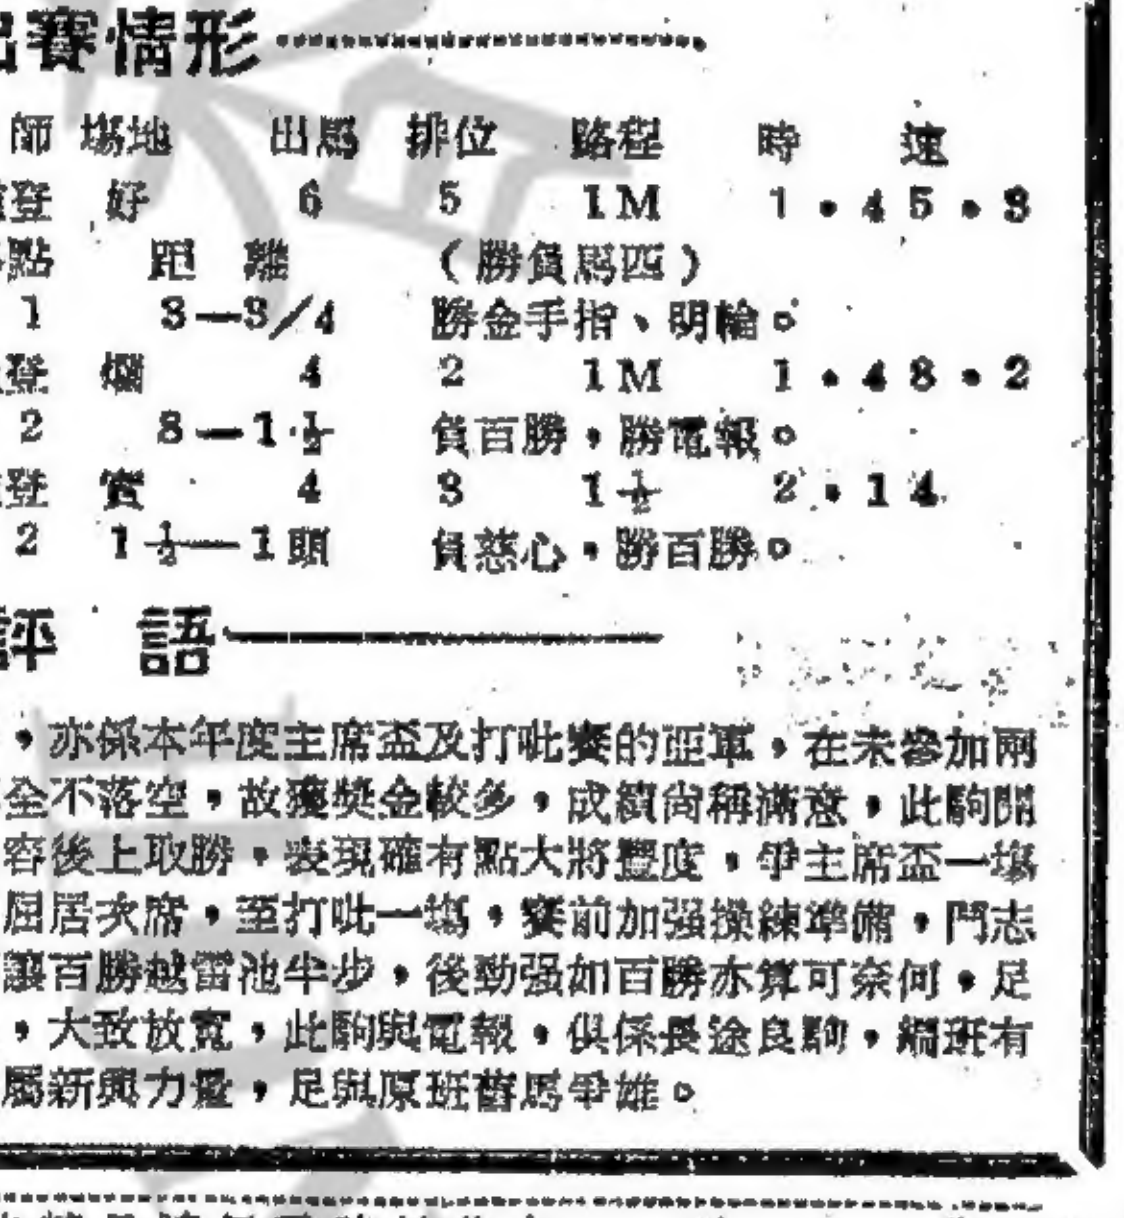 賽情形
師 塲地 出馬 排位 路程 時 速
登 好 6 5 1M 1.45.3
點 距離 （勝負馬匹）
1 3—3/4 勝金手指、明輪。
登 爛 4 2 1M 1.48.2
2 8—1½ 負百勝，勝電報。
登 實 4 3 1½ 2.14
2 1½—1頭 負慈心，勝百勝。
評 語
，亦係本年度主席盃及打吡賽的亞軍，在未參加兩
全不落空，故獲奬金較多，成績尚稱滿意，此駒開
容後上取勝，表現確有點大將豐度，爭主席盃一塲
屈居次席，至打吡一塲，賽前加强操練準備，鬥志
讓百勝越雷池半步，後勁强如百勝亦算可奈何，足
，大致放寬，此駒與電報，俱係長途良駒，編班有
屬新興力量，足與原班舊馬爭雄。